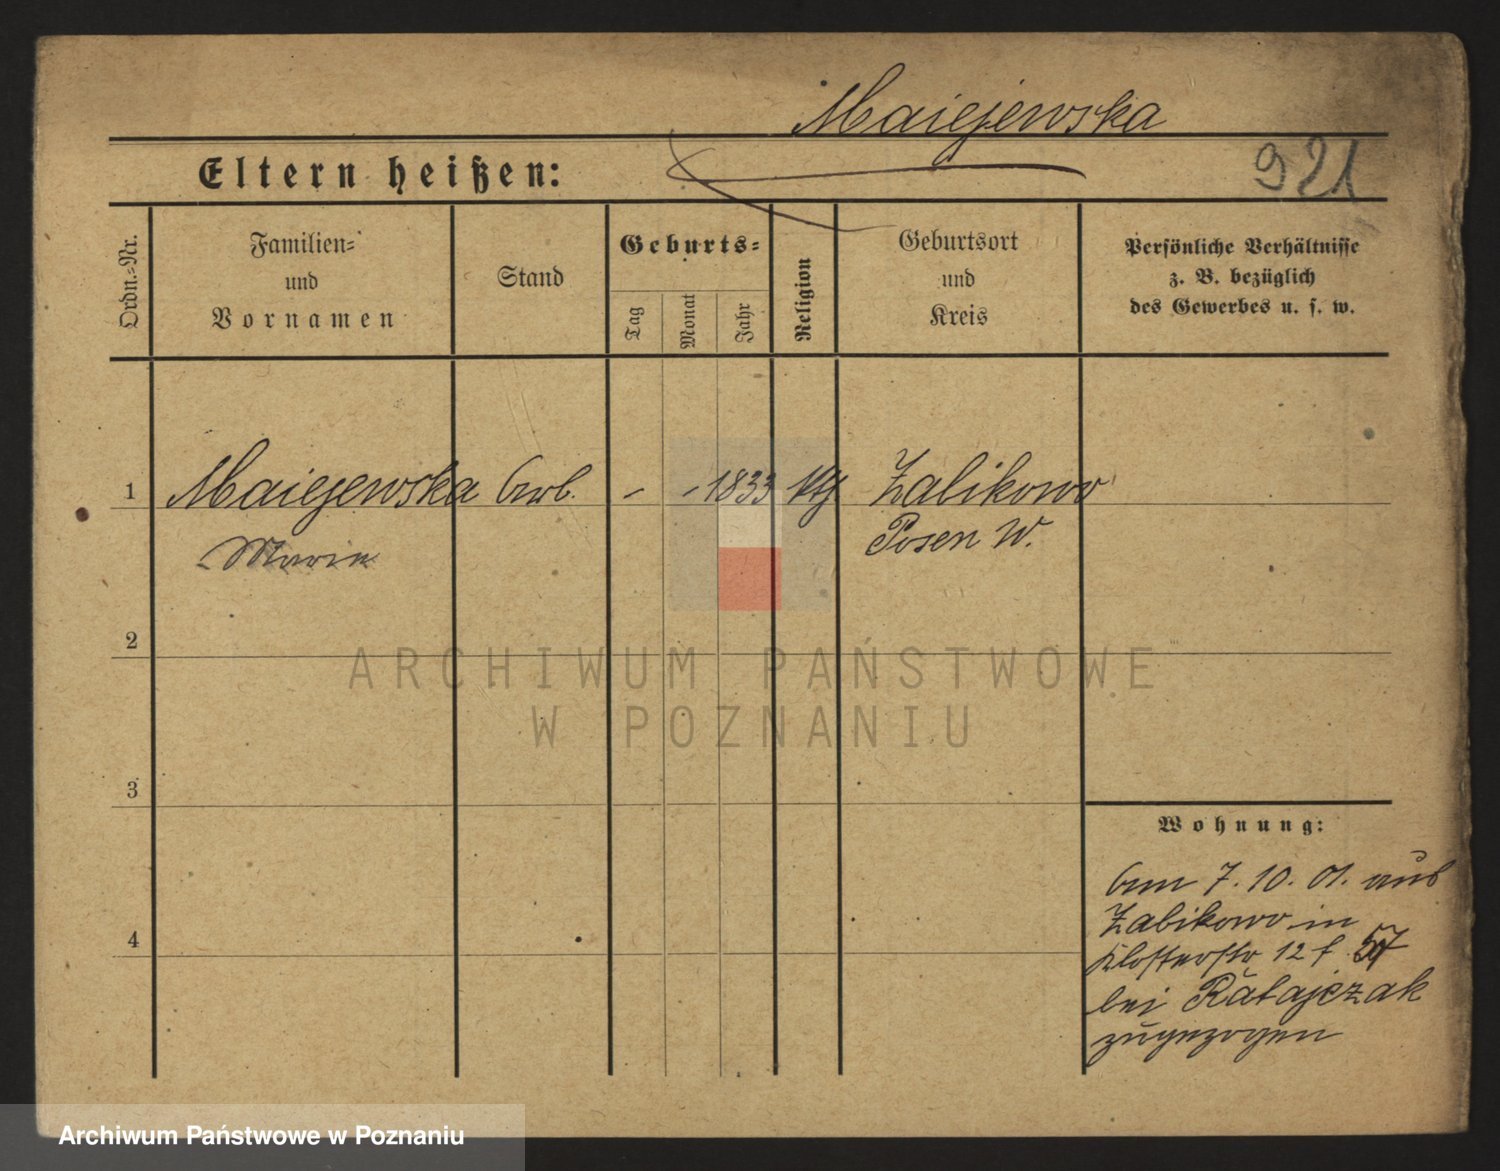 Maiejewska
Eltern heißen:
921
Ordn.-Nr.
Familien-
und
Vornamen
Stand
Geburts-
Tag
Monat
Jahr
Religion
Geburtsort
und
Kreis
Persönliche Verhältnisse
z. B. bezüglich
des Gewerbes u. s. w.
1 Maiejewska - - 1833 kth Zalikowo
Marie Posen W.
2
ARCHIWUM PAŃSTWOWE
W POZNANIU
3
Wohnung:
7. 10. 01. aus
Zabikowo in
4
Klosterstr 12 f. 57
bei Ratajczak
zugezogen
Archiwum Państwowe w Poznaniu